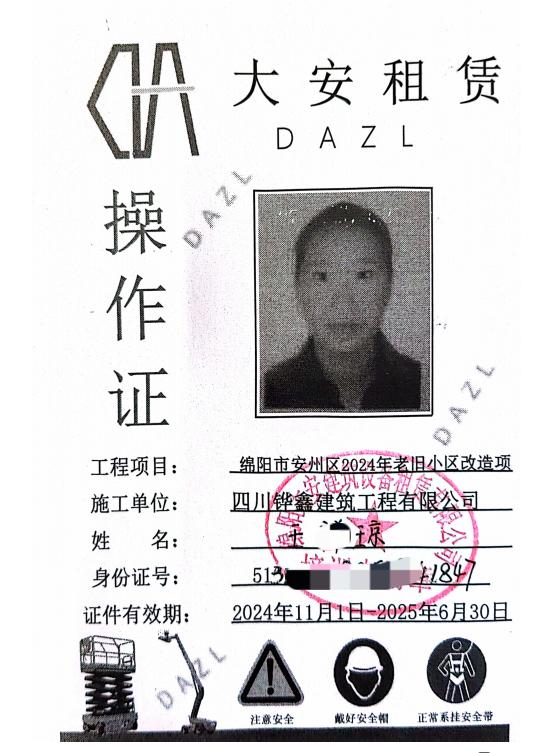 大安租赁
DAZL
操作证
DAZL
DAZL
工程项目: 绵阳市安州区2024年老旧小区改造项
施工单位: 四川铧鑫建筑工程有限公司
姓 名: 琼
身份证号: 513 1847
证件有效期: 2024年11月1日-2025年6月30日
DAZL
注意安全
戴好安全帽
正常系挂安全带